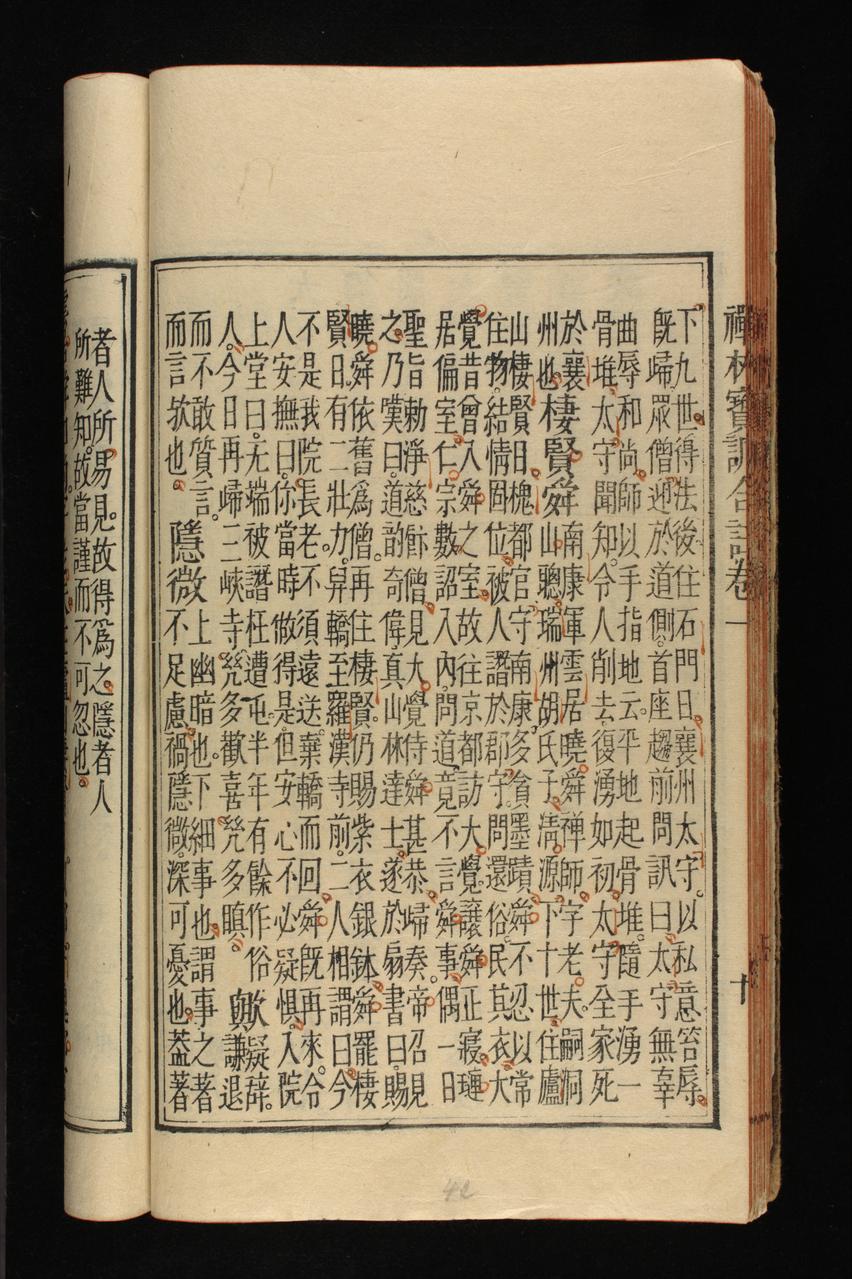 禪林寶訓合註卷一
十
下九世得法後住石門曰襄州太守以私意笞辱
既歸眾僧迎於道側首座趨前問訊曰太守無辜
曲辱和尚師以手指地云平地起骨堆隨手湧一
骨堆太守聞知令人削去復湧如初太守全家死
於襄
州也
棲賢舜
南康軍雲居曉舜禪師字老夫嗣洞
山聰瑞州胡氏子清源下十世住廬
山棲賢日槐都官守南康多貪墨蹟舜不忍以常
住物結情固位被人譖於郡守問還俗民其衣大
覺昔曾入舜之室故往京都訪大覺讓舜正寢璉
居偏室仁宗數詔入內問道竟不言舜事偶一日
聖旨勅淨慈飯僧見大覺侍舜甚恭歸奏帝召見
之乃嘆曰道韵奇偉真山林達士遂於扇書曰賜
曉舜依舊爲僧再住棲賢仍賜紫衣銀鉢舜罷棲
賢日有二壯力舁轎至羅漢寺前二人相謂曰今
不是我院長老不須遠送棄轎而回舜既再來令
人安撫曰你當時做得是但安心不必疑懼入院
上堂曰无端被譖枉遭屯半年有餘作俗
人今日再歸三峽寺㡬多歡喜㡬多瞋
歟
疑辭
謙退
而不敢質言
而言欤也
隱微
上幽暗也下細事也謂事之著
不足慮禍隱微深可憂也葢著
者人所易見故得爲之隱者人
所難知故當謹而不可忽也